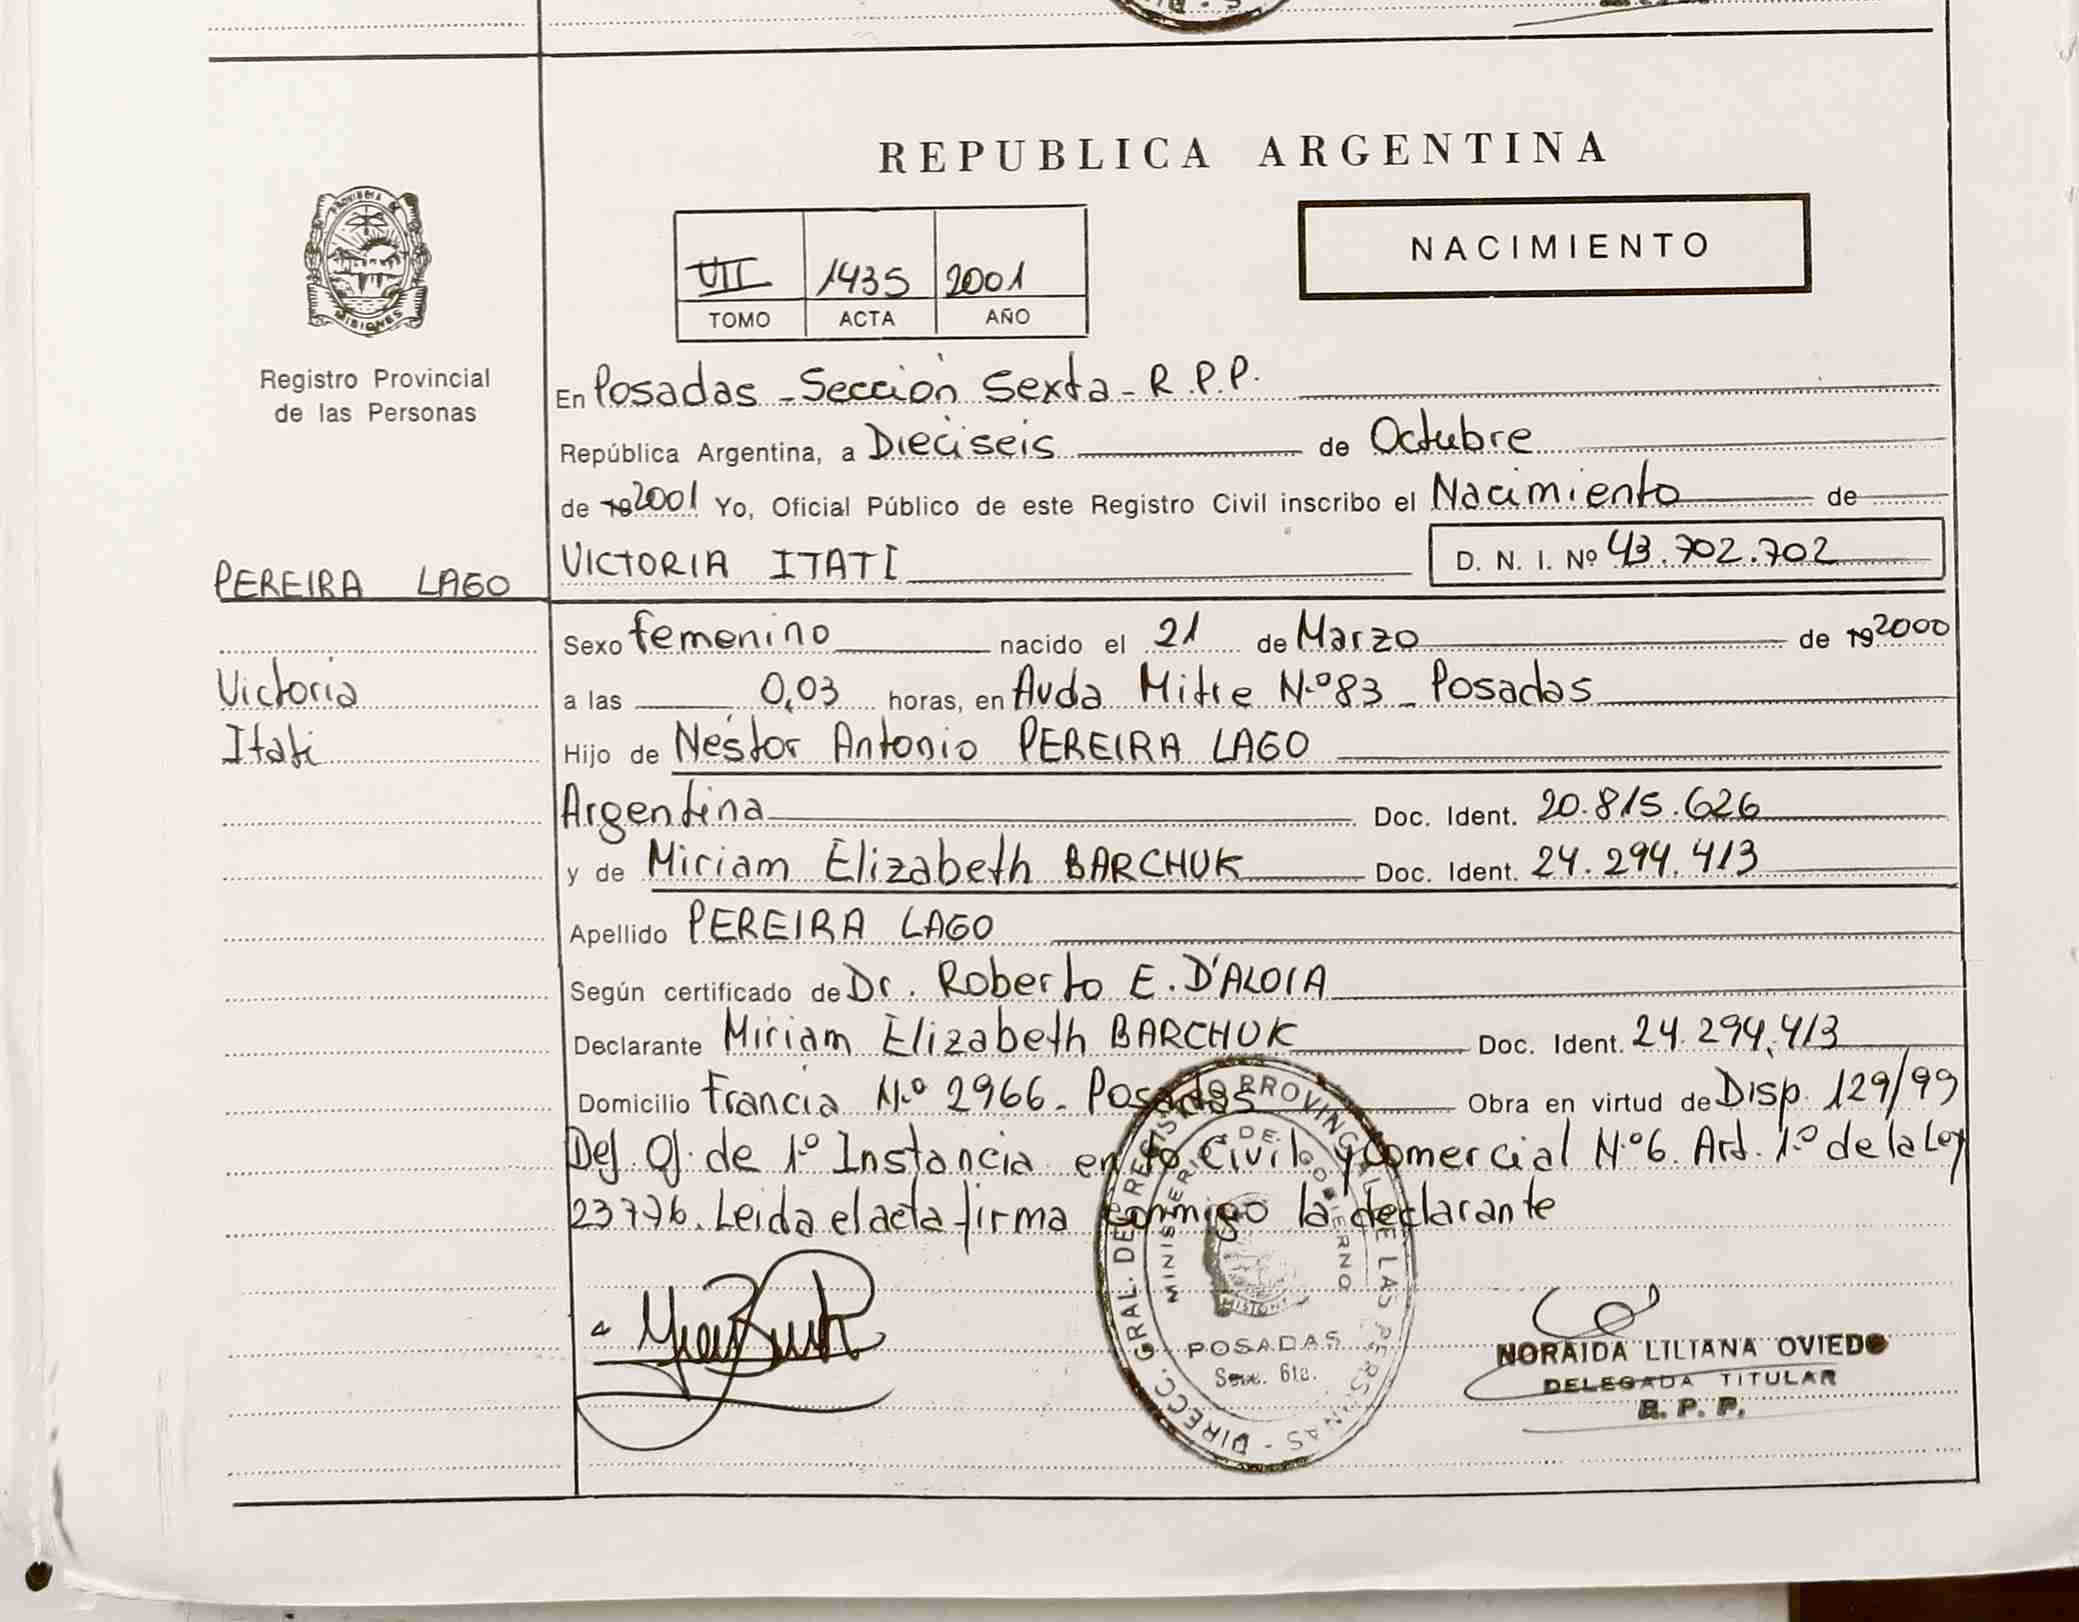 REPUBLICA ARGENTINA
NACIMIENTO
VII 1435 2001
TOMO ACTA AÑO
PROVINCIA DE
MISIONES
Registro Provincial
de las Personas
En Posadas - Sección Sexta - R.P.P.
República Argentina, a Dieciseis de Octubre
de 19 2001 Yo, Oficial Público de este Registro Civil inscribo el Nacimiento de
PEREIRA LAGO
VICTORIA ITATI D. N. I. Nº 43.702.702
Sexo femenino nacido el 21 de Marzo de 19 2000
Victoria
a las 0,03 horas, en Avda Mitre N.º 83 - Posadas
Itati
Hijo de Néstor Antonio PEREIRA LAGO
Argentina Doc. Ident. 20.815.626
y de Miriam Elizabeth BARCHUK Doc. Ident. 24.294.413
Apellido PEREIRA LAGO
Según certificado de Dr. Roberto E. D'ALOIA
Declarante Miriam Elizabeth BARCHUK Doc. Ident. 24.294.413
Domicilio Francia N.º 2966 - Posadas Obra en virtud de Disp. 129/99
Def. Of. de 1º Instancia en lo Civil y Comercial N.º 6. Art. 1.º de la Ley
23776. Leida el acta firma conmigo la declarante
DIRECC. GRAL. DEL REGISTRO PROVINCIAL DE LAS PERSONAS
MINISTERIO DE GOBIERNO
POSADAS
6ta.
NORAIDA LILIANA OVIEDO
DELEGADA TITULAR
R. P. P.